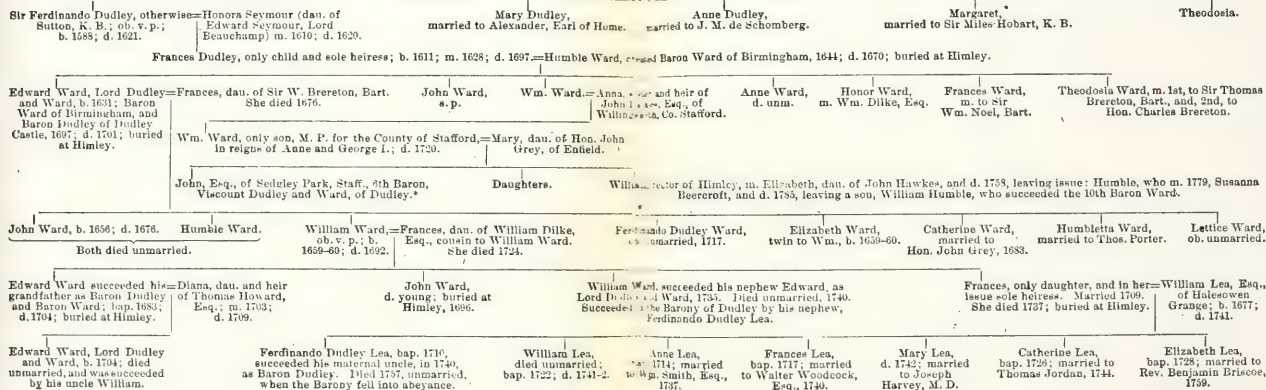 Sir Ferdinando Dudley, otherwise=Honora Seymour (dau. of
Sutton, K. B.; ob. v. p.; Edward Seymour, Lord
b. 1588; d. 1621. Beauchamp) m. 1610; d. 1620.
Mary Dudley,
married to Alexander, Earl of Home.
Anne Dudley,
married to J. M. de Schomberg.
Margaret,
married to Sir Miles Hobart, K. B.
Theodosia.
Frances Dudley, only child and sole heiress; b. 1611; m. 1628; d. 1697.=Humble Ward, created Baron Ward of Birmingham, 1644; d. 1670; buried at Himley.
Edward Ward, Lord Dudley=Frances, dau. of Sir W. Brereton, Bart.
and Ward, b. 1631; Baron She died 1676.
Ward of Birmingham, and
Baron Dudley of Dudley
Castle, 1697; d. 1701; buried
at Himley.
John Ward,
s.p.
Wm. Ward.=Anna, and heir of
John Esq., of
Co. Stafford.
Anne Ward,
d. unm.
Honor Ward,
m. Wm. Dilke, Esq.
Frances Ward,
m. to Sir
Wm. Noel, Bart.
Theodosia Ward, m. 1st, to Sir Thomas
Brereton, Bart., and, 2nd, to
Hon. Charles Brereton.
Wm. Ward, only son, M. P. for the County of Stafford,=Mary, dau. of Hon. John
in reigns of Anne and George I.; d. 1720. Grey, of Enfield.
John, Esq., of Sedgley Park, Staff., 6th Baron,
Viscount Dudley and Ward, of Dudley.*
Daughters.
William, rector of Himley, m. Elizabeth, dau. of John Hawkes, and d. 1758, leaving issue: Humble, who m. 1779, Susanna
Beercroft, and d. 1785, leaving a son, William Humble, who succeeded the 10th Baron Ward.
John Ward, b. 1656; d. 1676. Humble Ward.
Both died unmarried.
William Ward,=Frances, dau. of William Dilke,
ob. v. p.; b. Esq., cousin to William Ward.
1659-60; d. 1692. She died 1724.
Ferdinando Dudley Ward,
ob. unmarried, 1717.
Elizabeth Ward,
twin to Wm., b. 1659-60.
Catherine Ward,
married to
Hon. John Grey, 1683.
Humbletta Ward,
married to Thos. Porter.
Lettice Ward,
ob. unmarried.
Edward Ward succeeded his=Diana, dau. and heir
grandfather as Baron Dudley of Thomas Howard,
and Baron Ward; bap. 1683; Esq.; m. 1703;
d. 1704; buried at Himley. d. 1709.
John Ward,
d. young; buried at
Himley, 1696.
William Ward, succeeded his nephew Edward, as
Lord Dudley and Ward, 1735. Died unmarried, 1740.
Succeeded in the Barony of Dudley by his nephew,
Ferdinando Dudley Lea.
Frances, only daughter, and in her=William Lea, Esq.,
issue sole heiress. Married 1709. of Halesowen
She died 1737; buried at Himley. Grange; b. 1677;
d. 1741.
Edward Ward, Lord Dudley
and Ward, b. 1704; died
unmarried, and was succeeded
by his uncle William.
Ferdinando Dudley Lea, bap. 1710,
succeeded his maternal uncle, in 1740,
as Baron Dudley. Died 1757, unmarried,
when the Barony fell into abeyance.
William Lea,
died unmarried;
bap. 1722; d. 1741-2.
Anne Lea,
1714; married
to Wm. Smith, Esq.,
1737.
Frances Lea,
bap. 1717; married
to Walter Woodcock,
Esq., 1740.
Mary Lea,
d. 1742; married
to Joseph
Harvey, M. D.
Catherine Lea,
bap. 1726; married to
Thomas Jordan, 1744.
Elizabeth Lea,
bap. 1728; married to
Rev. Benjamin Briscoe,
1759.